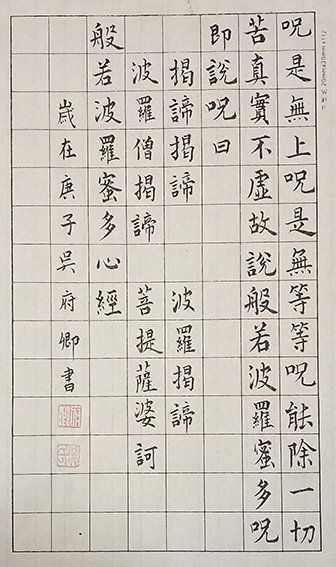 呪是無上呪是無等等呪能除一切
苦真實不虛故說般若波羅蜜多呪
即說呪曰
揭諦揭諦 波羅揭諦
波羅僧揭諦 菩提薩婆訶
般若波羅蜜多心經
歲在庚子吳府卿書